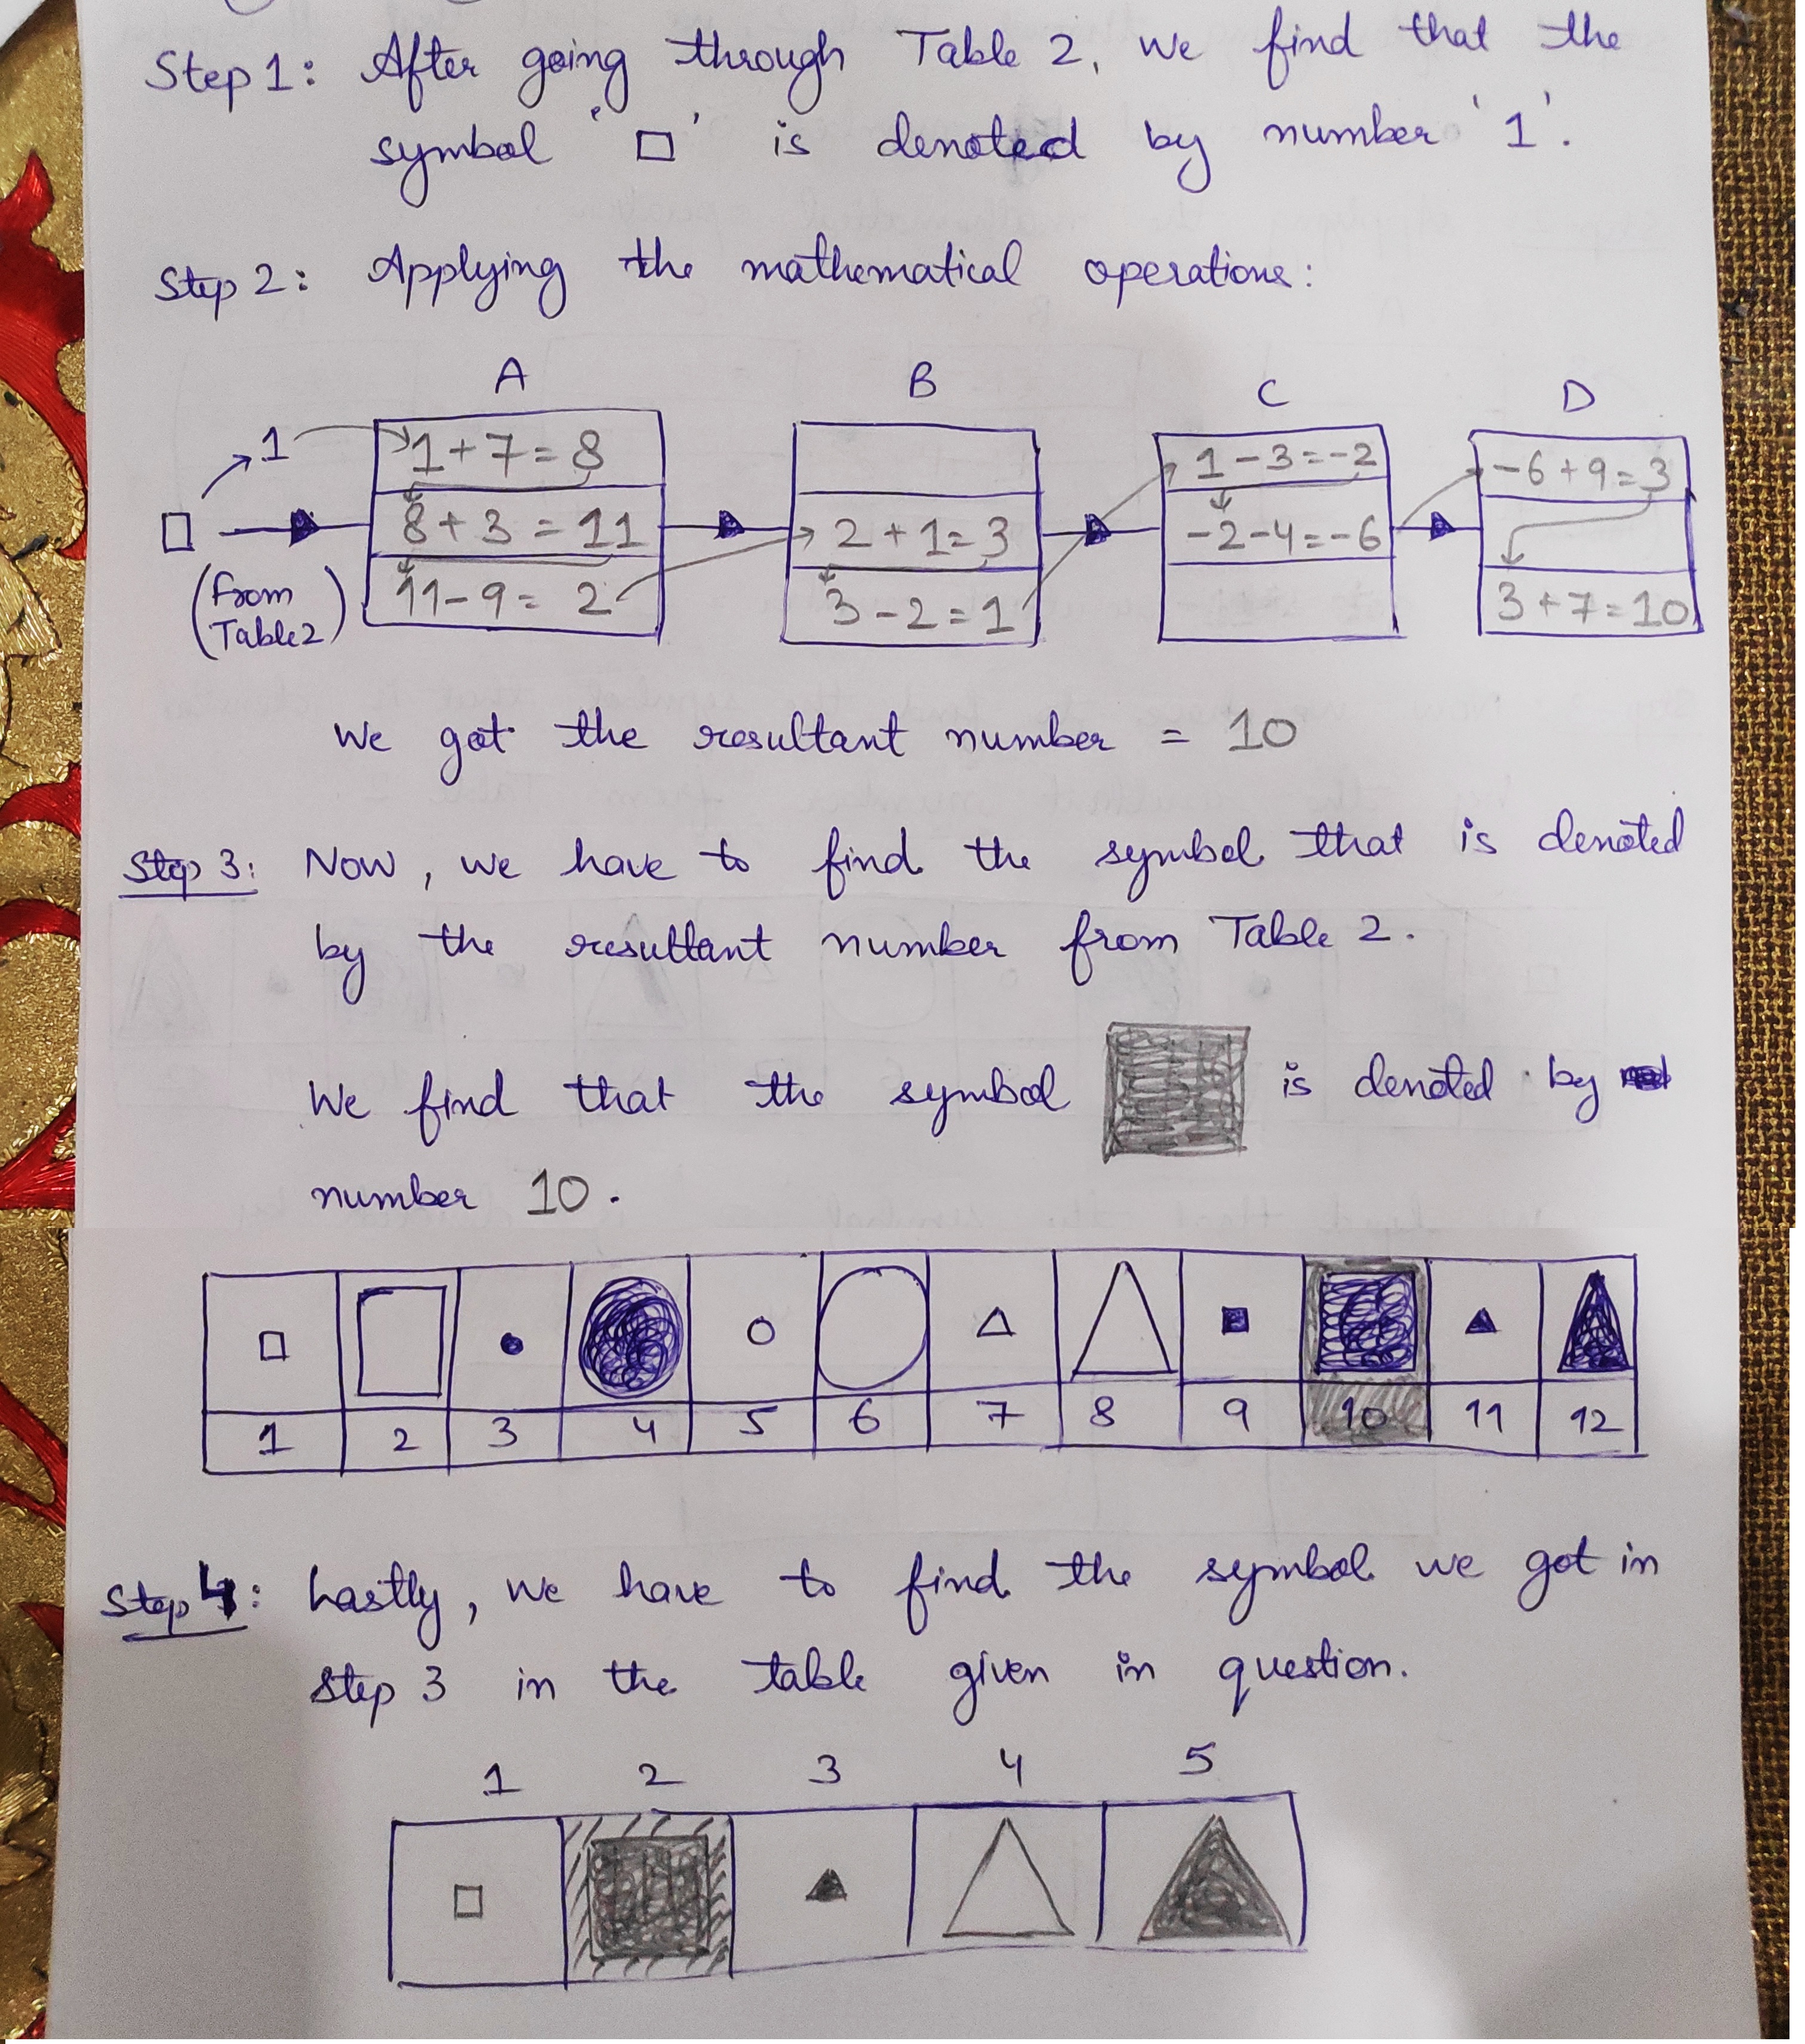 Step 1: After going through Table 2, we find that the
symbol '□' is denoted by number '1'.
Step 2: Applying the mathematical operations:
A B C D
1 1+7=8 1-3=-2 -6+9=3
□ 8+3=11 2+1=3 -2-4=-6
(from Table 2) 11-9=2 3-2=1 3+7=10
We got the resultant number = 10
Step 3: Now, we have to find the symbol that is denoted
by the resultant number from Table 2.
We find that the symbol ■ is denoted by
number 10.
1 2 3 4 5 6 7 8 9 10 11 12
Step 4: Lastly, we have to find the symbol we got in
Step 3 in the table given in question.
1 2 3 4 5